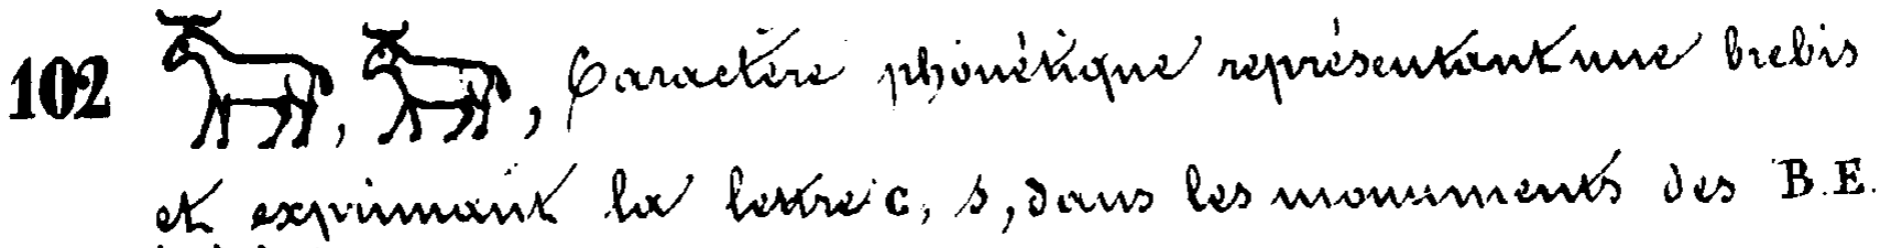 102 , , Caractère phonétique représentant une brebis
et exprimant la lettre c, s, dans les monuments des B.E.